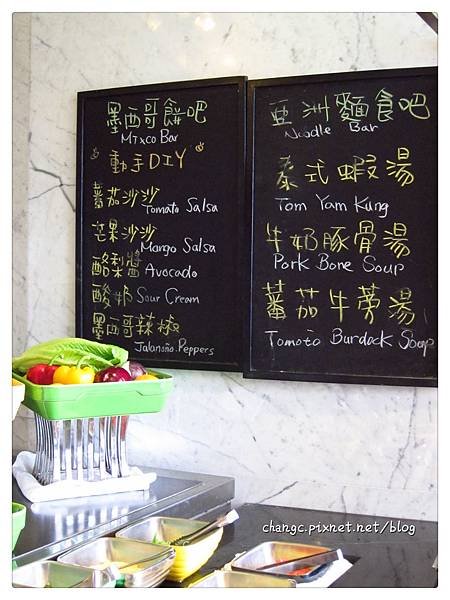 墨西哥餅吧
Mexco Bar
動手DIY
蕃茄沙沙
Tomato Salsa
芒果沙沙
Mango Salsa
酪梨醬 Avocado
酸奶 Sour Cream
墨西哥辣椒
Jalanoino Peppers
亞洲麵食吧
Noodle Bar
泰式蝦湯
Tom Yam Kung
牛奶豚骨湯
Pork Bone Soup
蕃茄牛蒡湯
Tomato Burdack Soop
changc.pixnet.net/blog